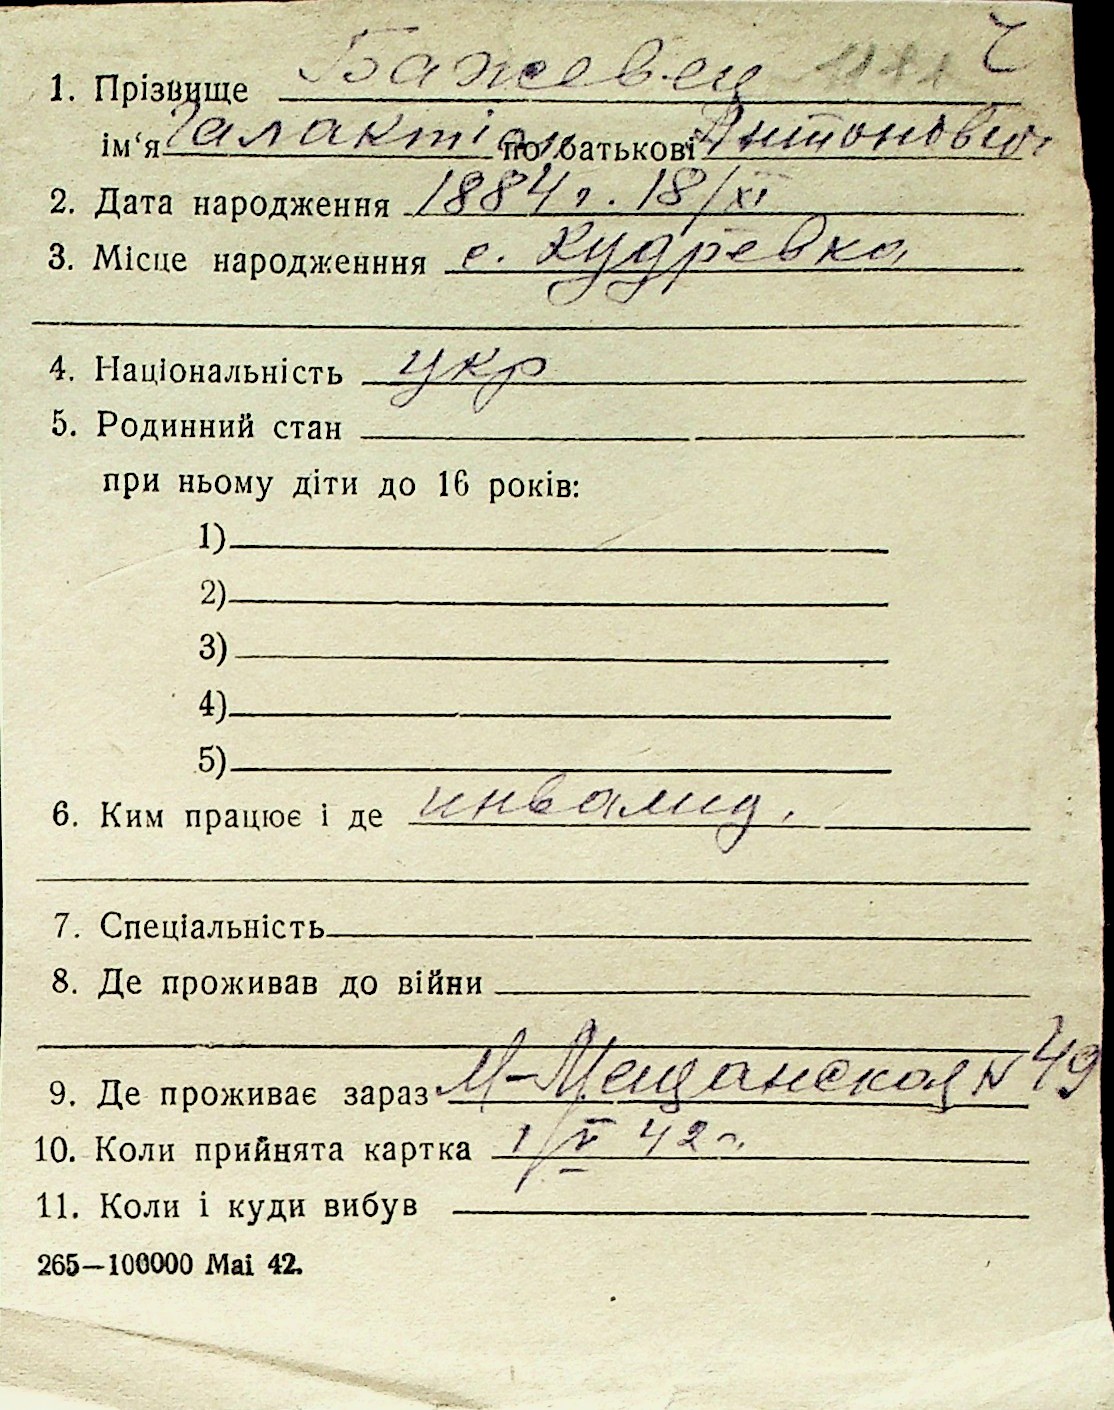 Ч
1. Прізвище Бажевец
ім‘я Галактіон по батькові Антонович
2. Дата народження 1884 г. 18/XI
3. Місце народженння с. Кудревка
4. Національність укр
5. Родинний стан
при ньому діти до 16 років:
1)
2)
3)
4)
5)
6. Ким працює і де инвалид.
7. Спеціальність
8. Де проживав до війни
9. Де проживає зараз М-Мещанская N 49
10. Коли прийнята картка 1/V 42 г.
11. Коли і куди вибув
265—100000 Mai 42.